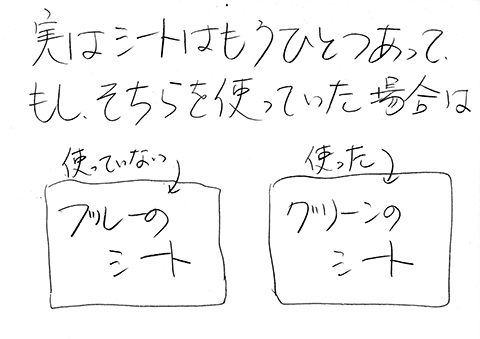 実はシートはもうひとつあって、
もし、そちらを使っていた場合は
使っていない
使った
ブルーの
シート
グリーンの
シート